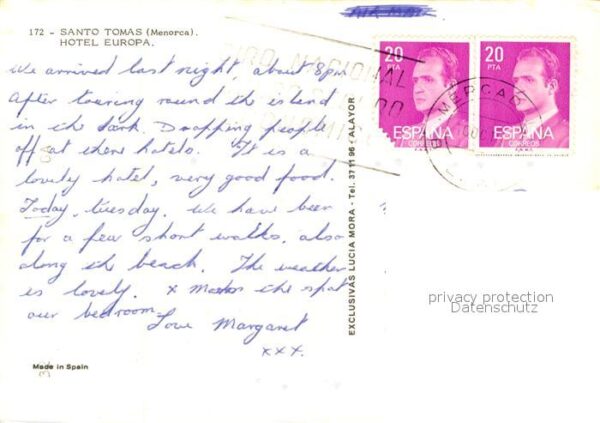 172 - SANTO TOMAS (Menorca).
HOTEL EUROPA.
AIR MAIL
We arrived last night, about 8pm
After touring round the island
in the dark. Dropping people
off at there hotels. It is a
lovely hotel, very good food.
Today, tuesday. We have been
for a few short walks, also
along the beach. The weather
is lovely. x Marks the spot
our bedroom
Love Margaret
xxx.
Made in Spain
EXCLUSIVAS LUCIA MORA - Tel. 371196 - ALAYOR
20
PTA
ESPAÑA
CORREOS
20
PTA
ESPAÑA
CORREOS
privacy protection
Datenschutz